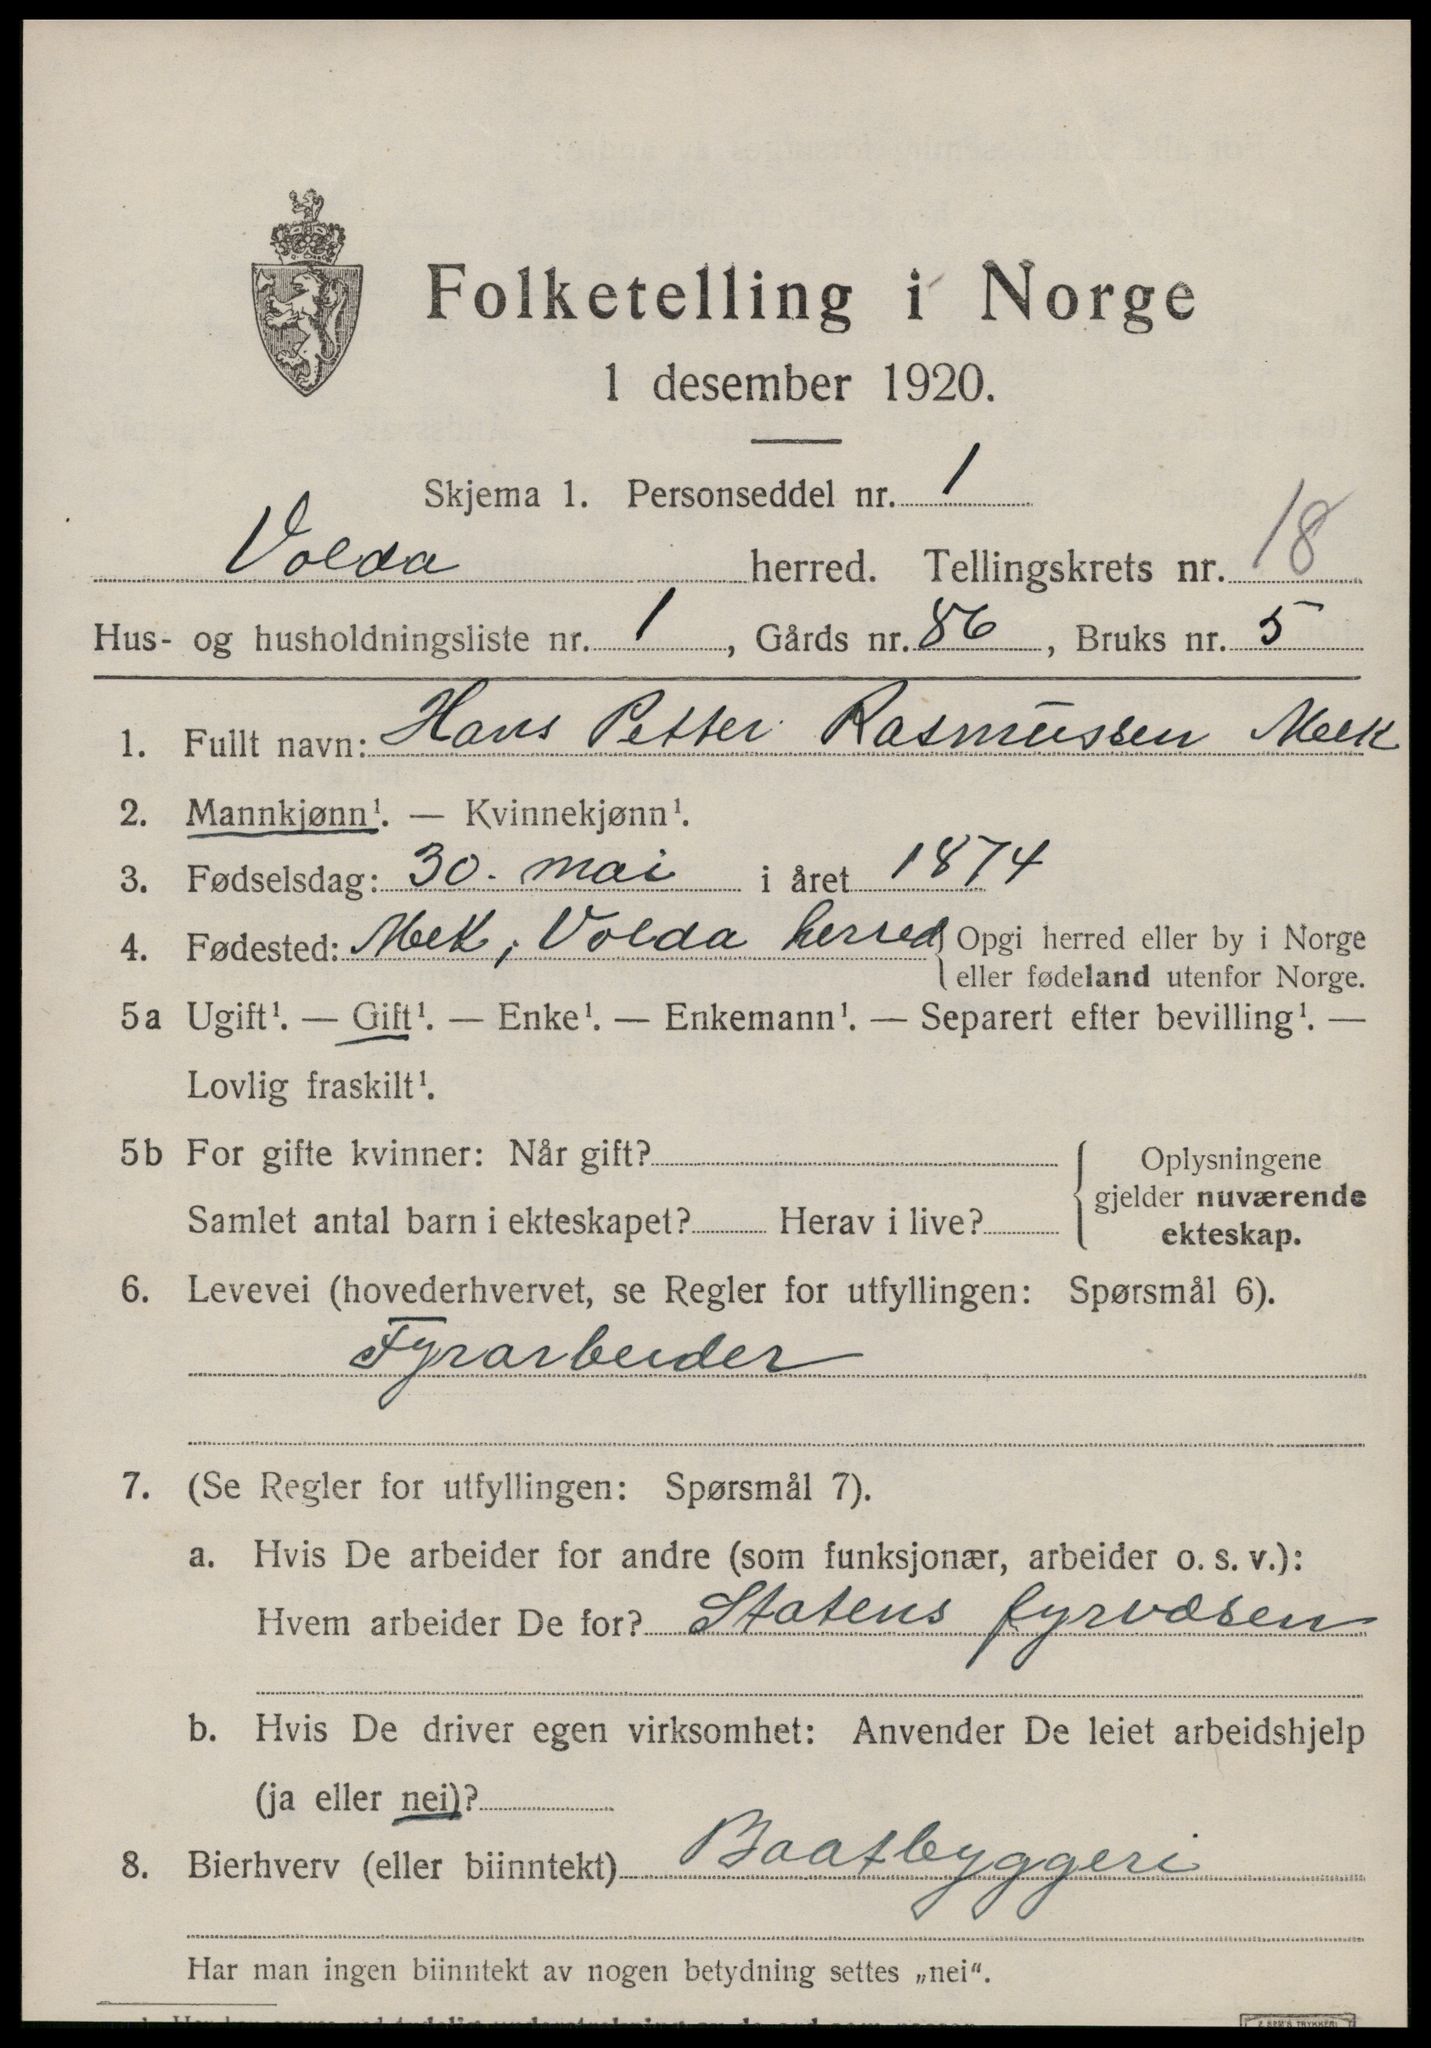 Folketelling i Norge
1 desember 1920.
Skjema 1. Personseddel nr. 1
Volda herred. Tellingskrets nr. 18
Hus- og husholdningsliste nr. 1, Gårds nr. 86, Bruks nr. 5
1. Fullt navn: Hans Petter Rasmussen Mek
2. Mannkjønn¹. — Kvinnekjønn¹.
3. Fødselsdag: 30. mai i året 1874
4. Fødested: Mek, Volda herred { Opgi herred eller by i Norge
eller fødeland utenfor Norge.
5a Ugift¹. — Gift¹. — Enke¹. — Enkemann¹. — Separert efter bevilling¹. —
Lovlig fraskilt¹.
5b For gifte kvinner: Når gift?
Samlet antal barn i ekteskapet? Herav i live?
{ Oplysningene
gjelder nuværende
ekteskap.
6. Levevei (hovederhvervet, se Regler for utfyllingen: Spørsmål 6).
Fyrarbeider
7. (Se Regler for utfyllingen: Spørsmål 7).
a. Hvis De arbeider for andre (som funksjonær, arbeider o. s. v.):
Hvem arbeider De for? Statens fyrvæsen
b. Hvis De driver egen virksomhet: Anvender De leiet arbeidshjelp
(ja eller nei)?
8. Bierhverv (eller biinntekt) Baatbyggeri
Har man ingen biinntekt av nogen betydning settes „nei“.